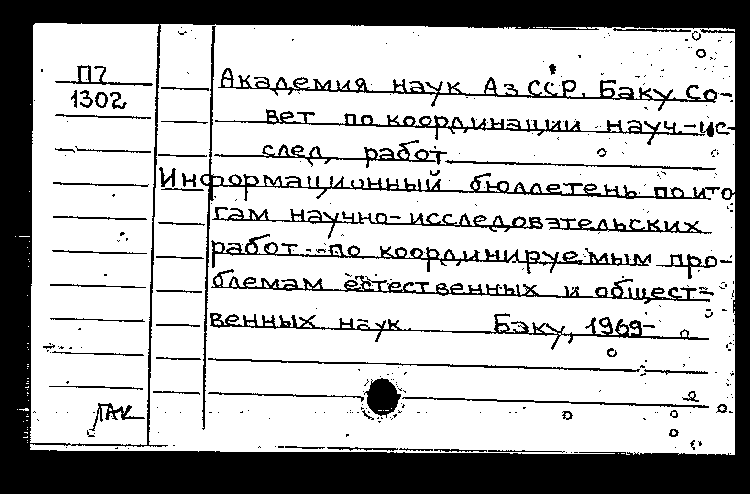 П7
1302
Академия наук АзССР. Баку. Со-
вет по координации науч.-ис-
след. работ
Информационный бюллетень по ито-
гам научно-исследовательских
работ по координируемым про-
блемам естественных и общест-
венных наук. Баку, 1969-
ПАК